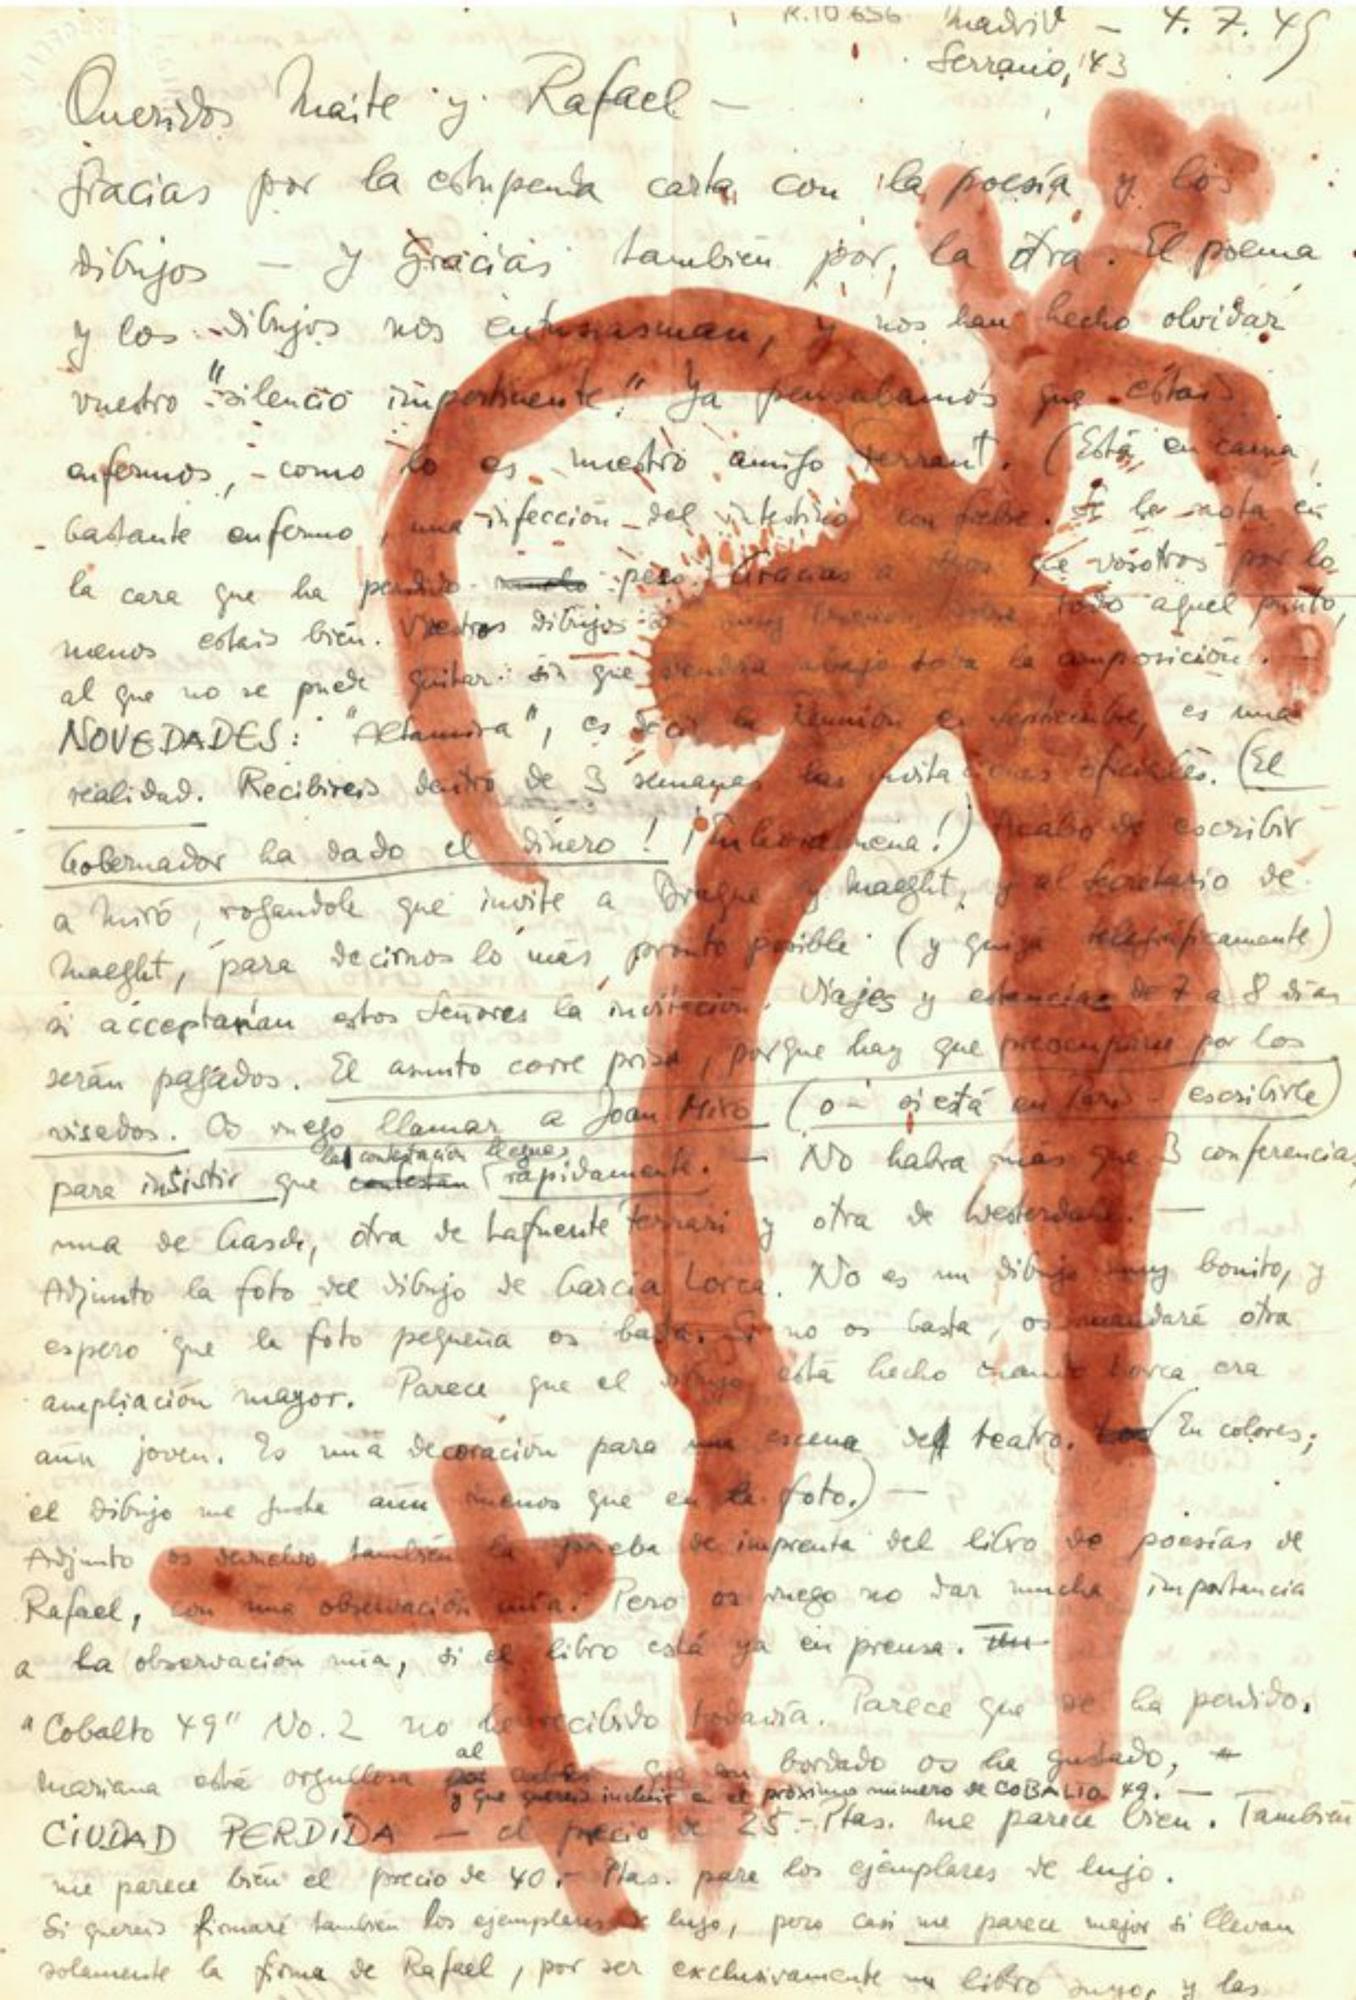 R.10.656 Madrid - 4.7.49
Serrano, 143
Queridos Maite y Rafael -
gracias por la estupenda carta con la poesía y los
dibujos - y gracias también por la otra. El poema
y los dibujos nos entusiasman, y nos han hecho olvidar
vuestro "silencio impertinente." Ya pensabamos que estais
enfermos, - como lo es nuestro amigo Ferrant. (Está en cama,
bastante enfermo, una infección del intestino con fiebre. Se le nota en
la cara que ha perdido peso.) Gracias a Dios que vosotros por lo
menos estais bien. Vuestros dibujos son muy buenos sobre todo aquel punto,
al que no se puede quitar sin que abajo toda la composición. -
NOVEDADES: "Altamira", es decir la Reunión en Septiembre, es una
realidad. Recibireis dentro de 3 semanas las invitaciones oficiales. (El
Gobernador ha dado el dinero! ¡Enhorabuena!) Acabo de escribir
a Miró, rogandole que invite a Braque y Maeght, y al Secretario de
Maeght, para decirnos lo más pronto posible (y quizá telegráficamente)
si acceptarían estos Señores la invitación. Viajes y estancias de 7 a 8 días
serán pagados. El asunto corre prisa, porque hay que preocuparse por los
visados. Os ruego llamar a Joan Miró (o - si está en París - escribirle)
para insistir que la contestación llegue rápidamente. - No habra más que 3 conferencias,
una de Gasch, otra de Lafuente Ferrari y otra de Westerdahl. -
Adjunto la foto del dibujo de García Lorca. No es un dibujo muy bonito, y
espero que la foto pequeña os basta. Si no os basta, os mandaré otra
ampliación mayor. Parece que el dibujo está hecho cuando Lorca era
aun joven. Es una decoración para una escena del teatro. En colores;
el dibujo me gusta aun menos que en la foto.) -
Adjunto os devuelvo también la prueba de imprenta del libro de poesías de
Rafael, con una observación mía. Pero os ruego no dar mucha importancia
a la observación mía, si el libro está ya en prensa.
"Cobalto 49" No. 2 no he recibido todavía. Parece que se ha perdido.
Mariana está orgullosa al que su bordado os ha gustado,
y que quereis incluir en el próximo número de COBALTO 49. -
CIUDAD PERDIDA - el precio de 25.- Ptas. me parece bien. También
me parece bien el precio de 40.- Ptas. para los ejemplares de lujo.
Si quereis firmaré tambien los ejemplares de lujo, pero casi me parece mejor si llevan
solamente la firma de Rafael, por ser exclusivamente un libro suyo, y las